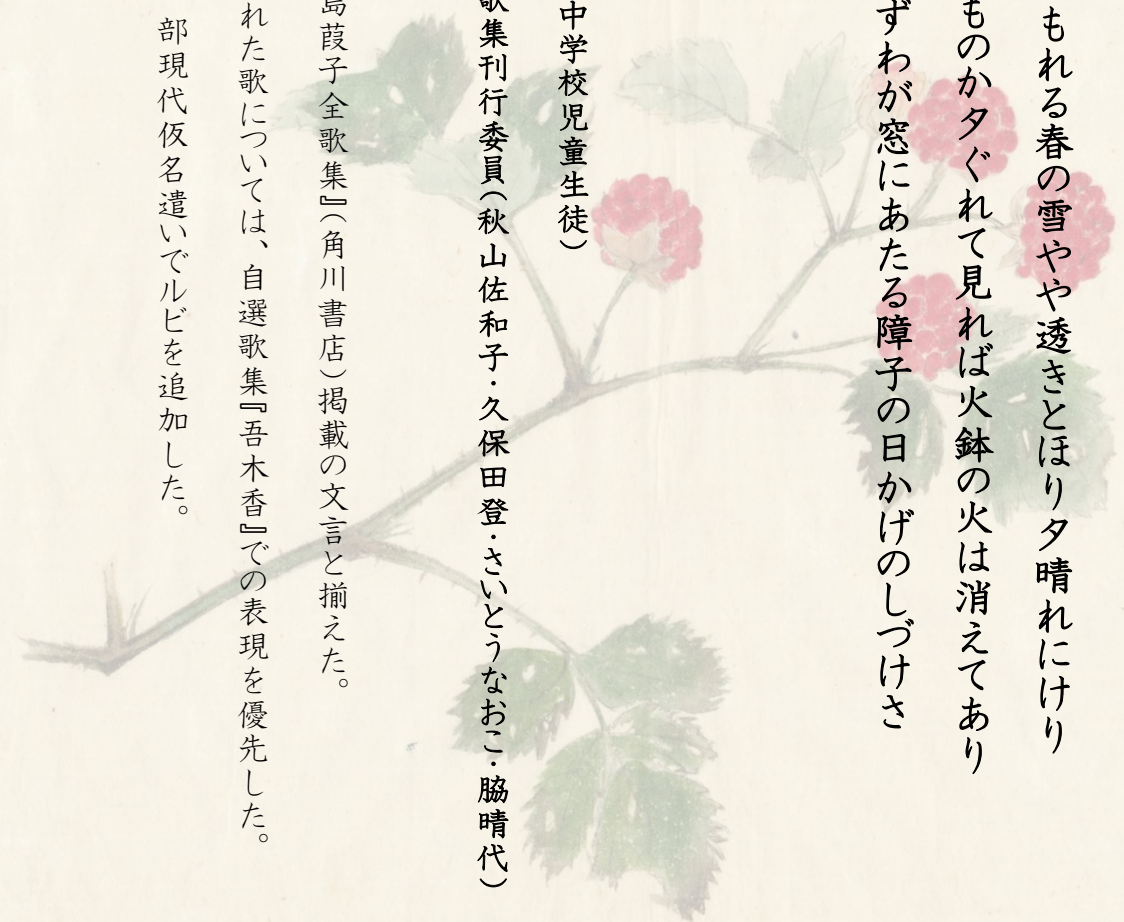 もれる春の雪やや透きとほり夕晴れにけり
ものか夕ぐれて見れば火鉢の火は消えてあり
ずわが窓にあたる障子の日かげのしづけさ
中学校児童生徒）
歌集刊行委員（秋山佐和子・久保田登・さいとうなおこ・脇晴代）
島葭子全歌集』（角川書店）掲載の文言と揃えた。
れた歌については、自選歌集『吾木香』での表現を優先した。
部現代仮名遣いでルビを追加した。